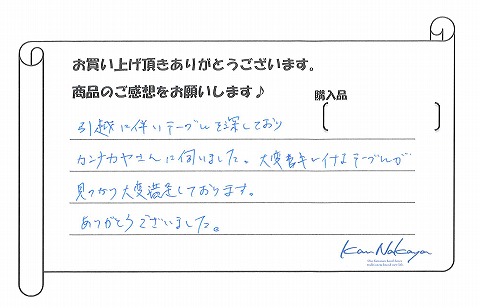 お買い上げ頂きありがとうございます。
商品のご感想をお願いします♪
購入品
引越に伴いテーブルを探しており
カンナカヤさんに伺いました。大変 テーブルが
見つかり大変満足しております。
ありがとうございました。
Kan Nakaya